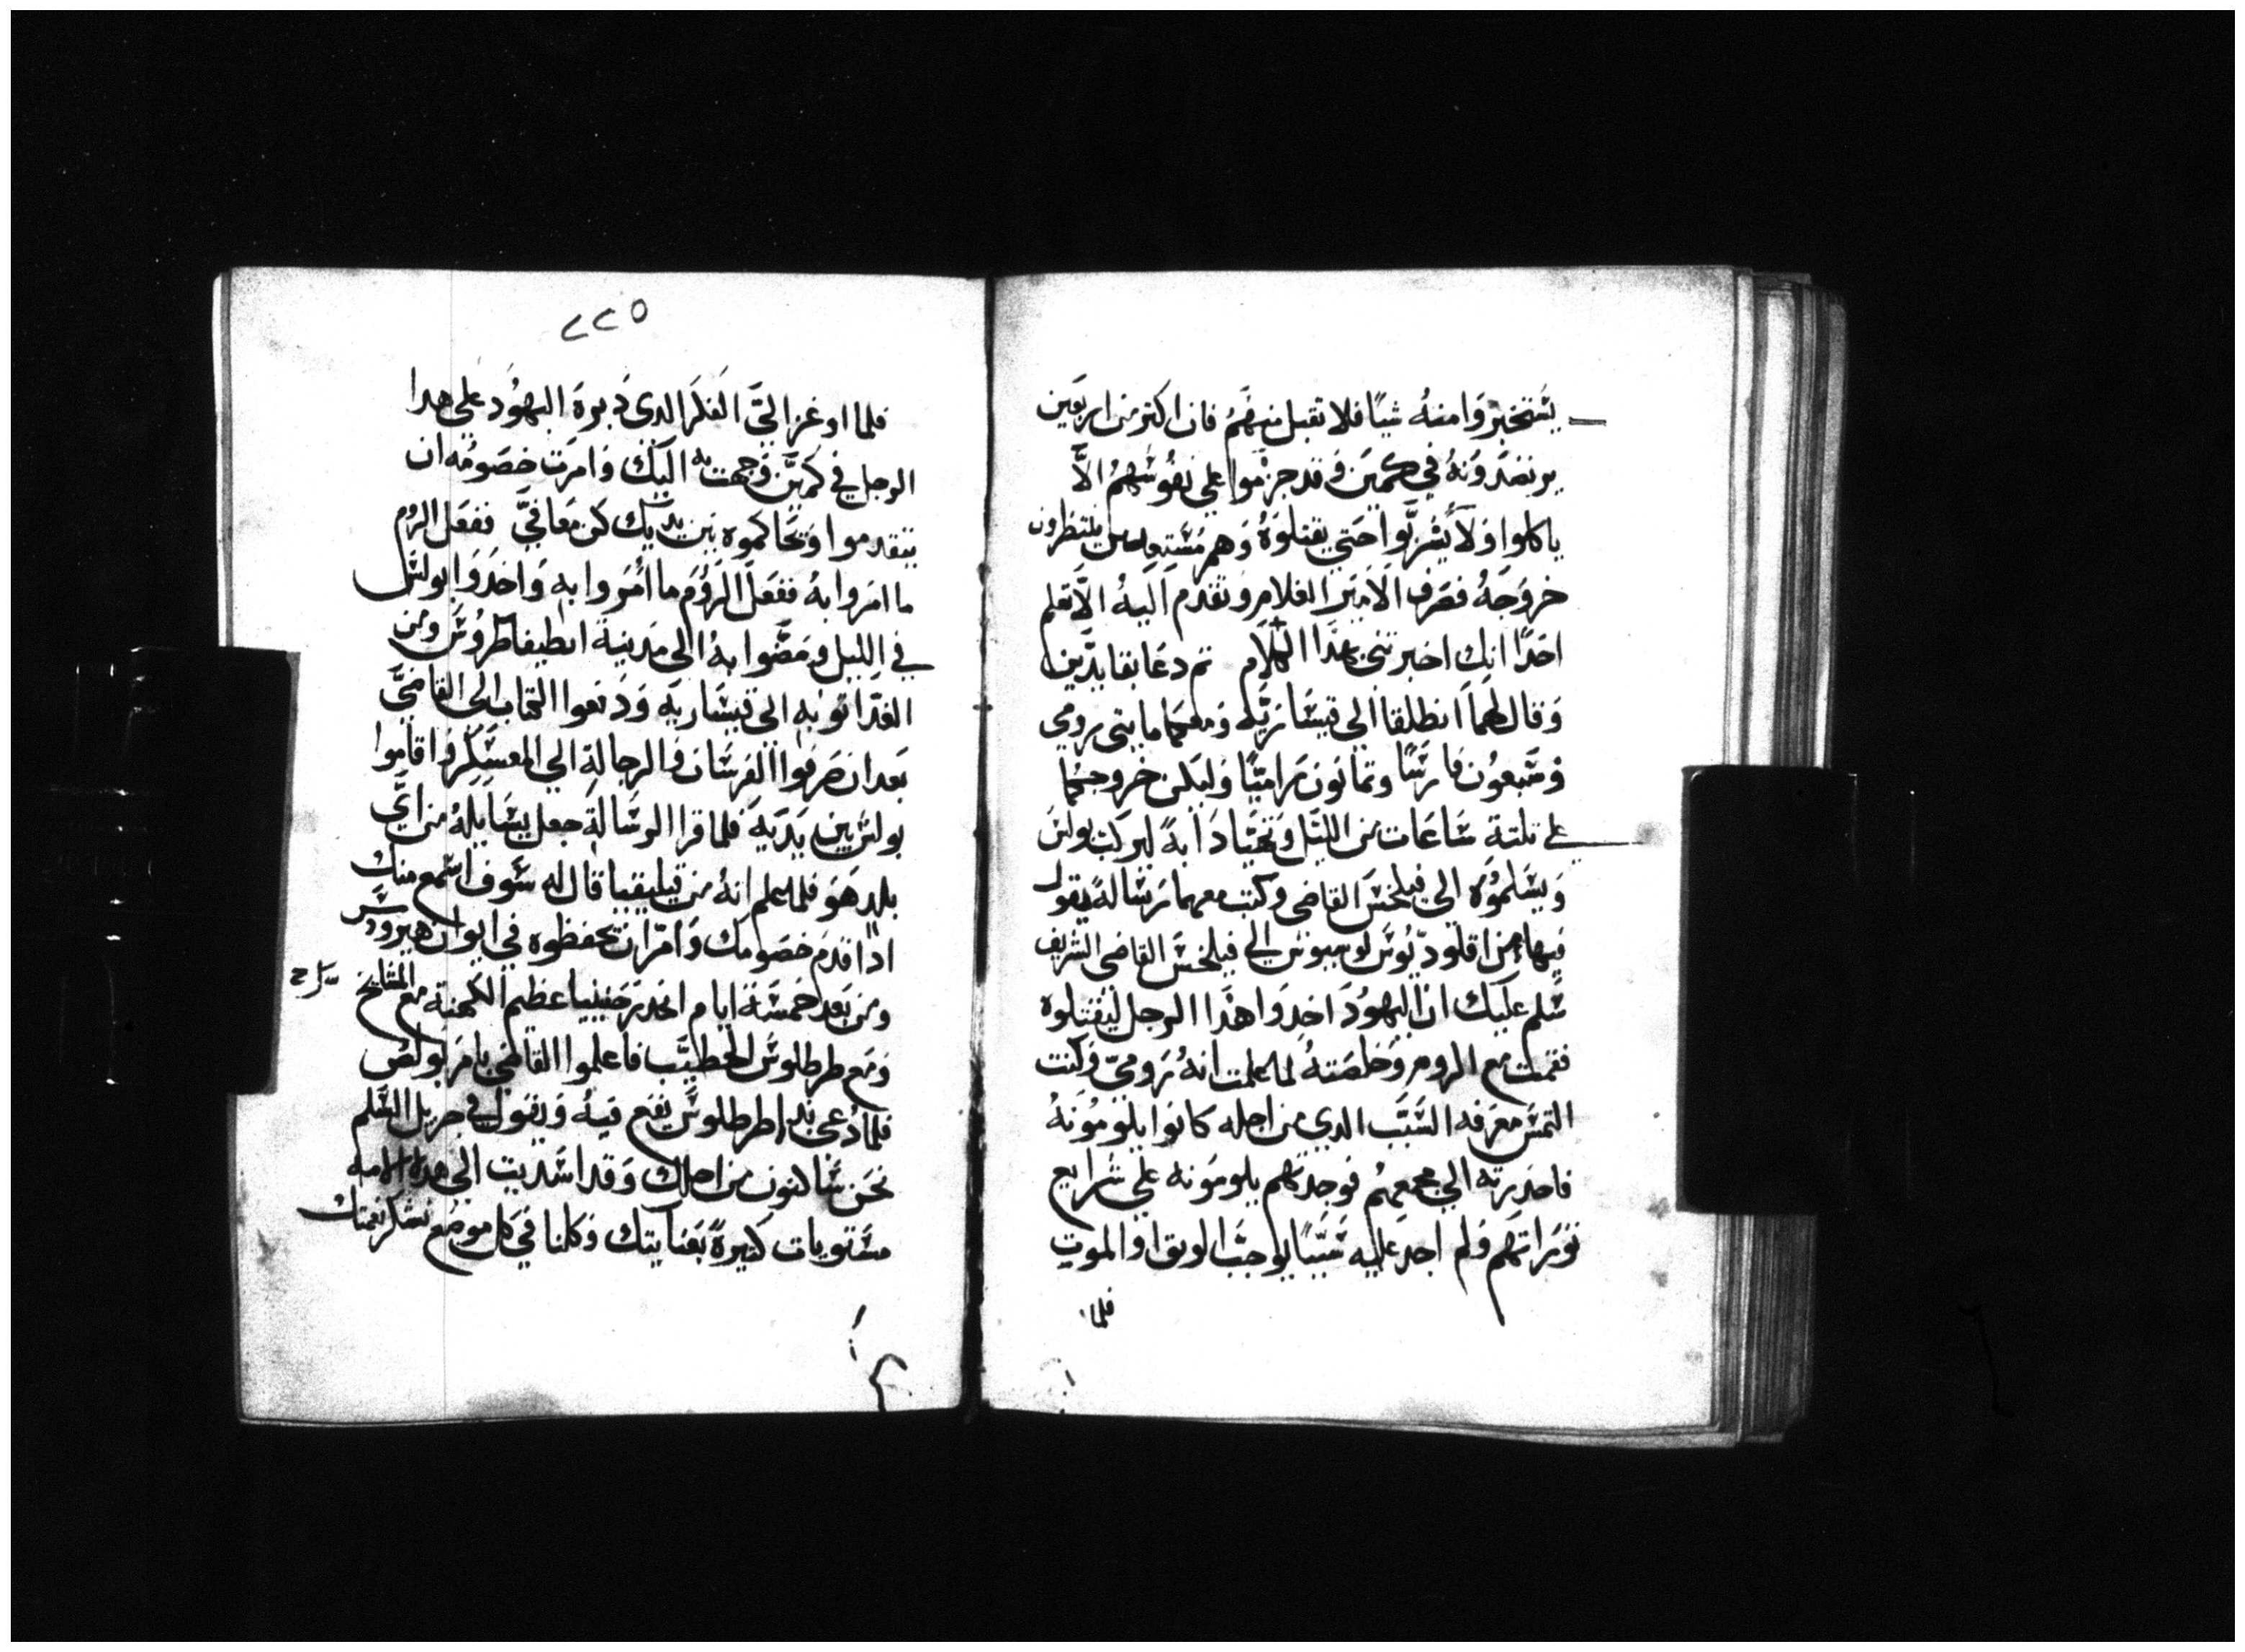 يستخبروا منه شيًا فلا تقبل منهم فان اكتر من اربعين
يرتصدونه في كمين وقد جزموا علي نفوسهم الَّا
ياكلوا ولا يشربوا حتي يقتلوه وهم مستعدين ينتظرون
خروجه فصرف الامير الغلام وتقدم اليه الَّا تعلم
احدًا انك اخبرتني بهذا الكلام تم دعا بقايدين
وقال لهما انطلقا الي قيساريه ومعكما مايتي رومي
وسبعون فارسًا وتمانون راميًا وليكن خروجكما
علي تلتة ساعات من الليل وتحتيا دابةً ليركب بولس
ويسلموه الي فيلخس القاضي وكتب معهما رسالةً يقول
فيها من اقلوديوس لوسيوس الي فيلخس القاضي الشريف
سلم عليك ان اليهود اخدوا هذا الرجل ليقتلوه
فقمت مع الروم وخلصته لما علمت انه رومي وكنت
التمس معرفه السبب الدي من اجله كانوا يلومونه
فاحدرته الي مجمعهم فوجدتهم يلومونه علي شرايع
توراتهم ولم اجد عليه سببًا يوجب الوتق او الموت
فلما
٢٢٥
فلما اوعز الَيَّ الفكر الدي دبره اليهود علي هدا
الرجل في كمين وجهت به اليك وامرت خصومه ان
يتقدموا وتحاكموه بين يديك كن معافيَّ ففعل الروم
ما امروا به ففعل الروم ما امروا به واخدوا بولس
في الليل ومضوا به الي مدينة انطيفاطروس ومن
الغد اتوا به الي قيساريه ودفعوا الكتاب الي القاضي
بعد ان صرفوا الفرسان والرجالة الي المعسكر واقاموا
بولس بين يديه فلما قرا الرسالة جعل يسايله من اي
بلدٍ هو فلما علم انه من قيليقيا قال له سوف اسمع منك
ادا قدم خصومك وامر ان تحفظوه في ايوان هيرودس
ومن بعد خمسة ايام انحدر حنينيا عظيم الكهنة مع المشايخ
ومع طرطلوس الخطيب فاعلموا القاضي بامر بولص
فلما دعي بدا طرطلوس يقع فيه ويقول في جزيل السلم
نحن ساكنون من اجلك وقد اسديت الي هده الامه
مستويات كتيرة بعنايتك وكلنا في كل موضع نشكر نعمتك